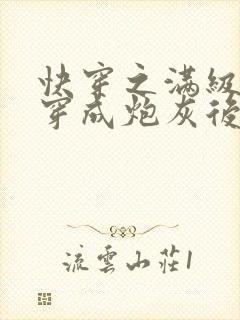 快穿之满級
穿成炮灰後
流雲山莊1